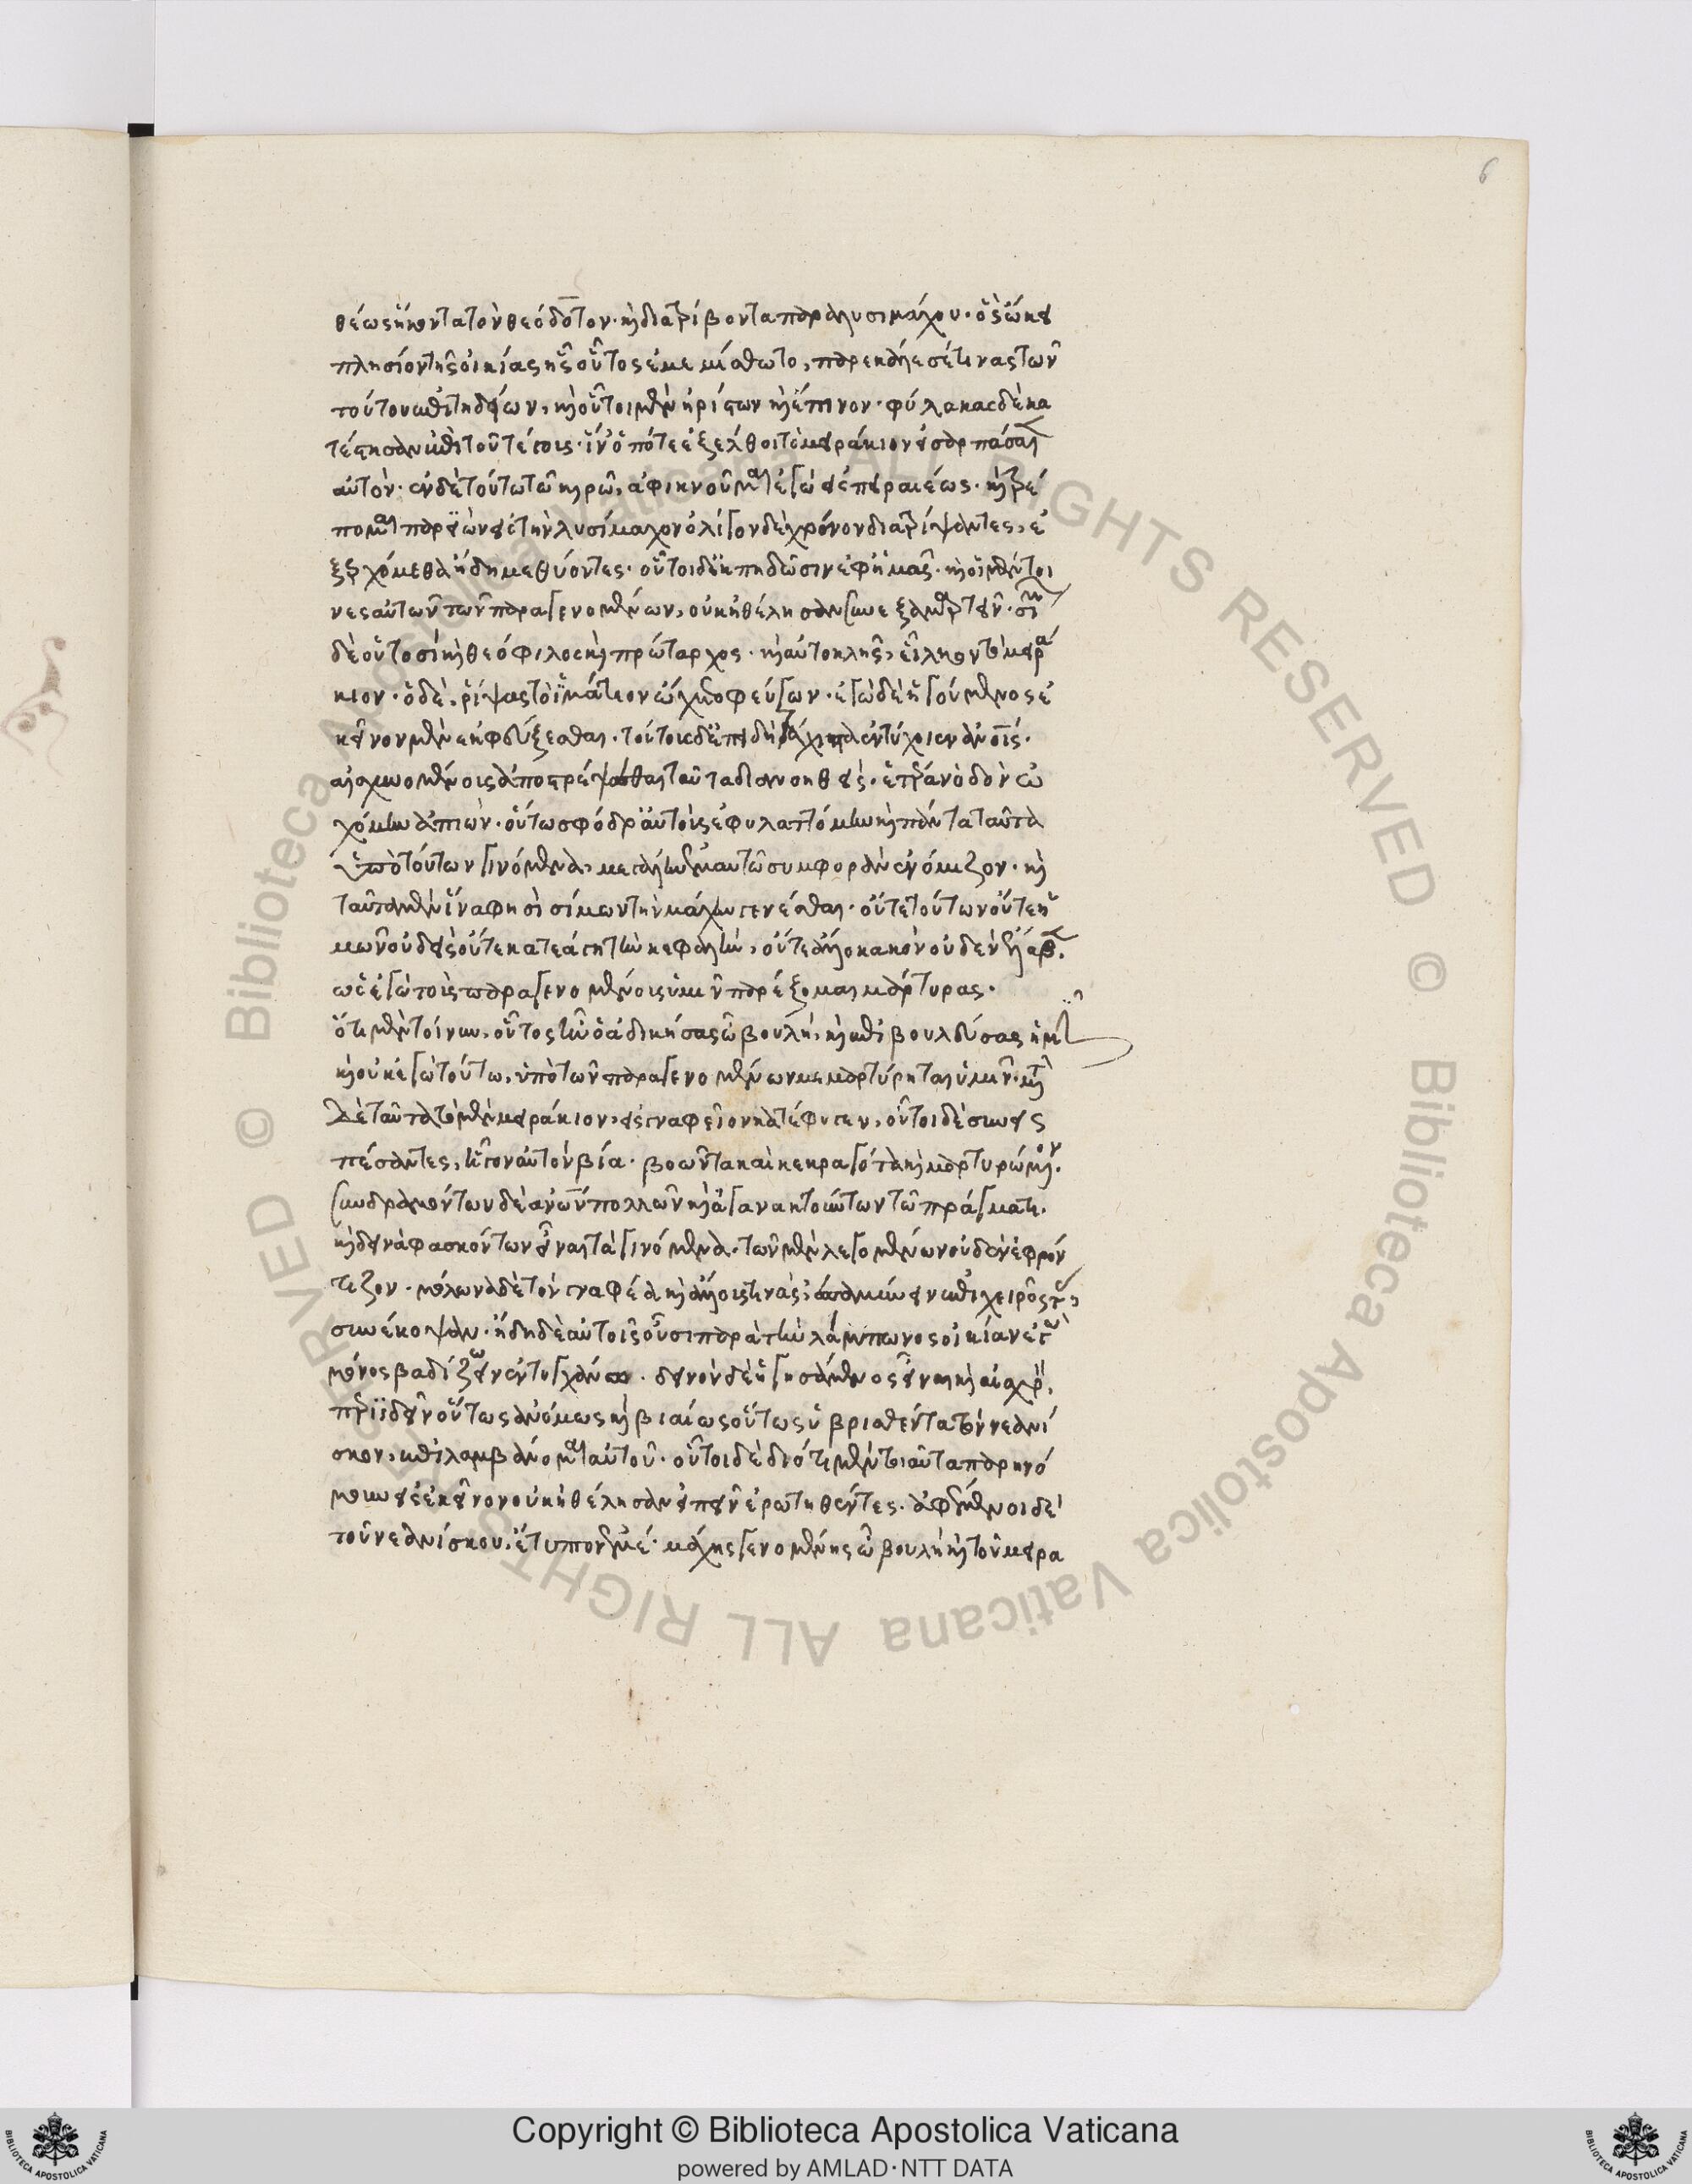 θέως ἥκοντα τὸν θεόδοτον· καὶ διατρίβοντα παρὰ λυσιμάχου· ὃς ὤκει
πλησίον τῆς οἰκίας ἧς οὗτος ἐμεμίσθωτο, παρεκάλεσέ τινας τῶν
τούτου ἐπιτηδείων, καὶ οὗτοι μὲν ἠρίστων καὶ ἔπινον· φύλακας δὲ κα
τέστησαν ἐπὶ τοῦ τέγους· ἵν' ὁπότε ἐξέλθοι τὸ μειράκιον εἰσαρπάσαιεν
αὐτόν· ἐν δὲ τούτω τῶ καιρῶ, ἀφικνοῦμαι ἐγὼ ἐπειραιέως· καὶ τρέ
πομαι λυσίμαχον ὀλίγον δὲ χρόνον διατρίψαντες, ἐ
ξερχόμεθα ἤδη μεθύοντες· οὗτοι δ' ἐκπηδῶσιν ἐφ' ἡμᾶς· καὶ οἱ μέν τι
νες αὐτῶν τῶν παραγενομένων, οὐκ ἠθέλησαν συνεξαμαρτεῖν· σίμων
δὲ οὑτοσὶ καὶ θεόφιλος καὶ πρώταρχος· καὶ αὐτοκλῆς, εἷλκον τὸ μειρά
κιον· ὁ δὲ, ῥίψας τὸ ἱμάτιον ὤχετο φεύγων· ἐγὼ δὲ ἡγούμενος ἐ
κεῖνον μὲν ἐκφεύξεσθαι· τούτοις δ' ἐπειδὴ τάχιστα ἐντύχοιεν ἀνοις·
αἰσχυνομένοις ἀποτρέψεσθαι ταῦτα διανοηθεὶς· ἑτέραν ὁδὸν ὠ
χόμην ἀπιών· οὕτω σφόδρ' αὐτοὺς ἐφυλαττόμην καὶ πάντα ταῦτα
ὑπὸ τούτων γινόμενα, μεγάλην ἐμαυτῶ συμφορὰν ἐνόμιζον· καὶ
ταῦτα μὲν ἵνα φησὶ σίμων τὴν μάχην γενέσθαι· οὔτε τούτων οὔτε ἡ
μῶν οὐδεὶς οὔτε κατεάγη τὴν κεφαλὴν, οὔτε ἄλλο κακὸν οὐδὲν ἔλαβεν·
ὡς ἐγὼ τοὺς παραγενομένους ὑμῖν παρέξομαι μάρτυρας·
ὅτι μὲν τοίνυν, οὗτος ἦν ὁ ἀδικήσας ὦ βουλὴ, καὶ ἐπιβουλεύσας ἡμῖν
καὶ οὐκ ἐγὼ τούτω, ὑπὸ τῶν παραγενομένων μεμαρτύρηται ὑμῖν· μετὰ
δὲ ταῦτα τὸ μὲν μειράκιον, εἰς γναφεῖον κατέφυγεν, οὗτοι δὲ συνεις
πέσοντες, ἦγον αὐτὸν βία· βοῶντα καὶ κεκραγότα καὶ μαρτυρόμενον·
συνδραμόντων δὲ ἀνων πολλῶν καὶ ἀγανακτούντων τῶ πράγματι·
καὶ δεινὰ φασκόντων εἶναι τὰ γινόμενα· τῶν μὲν λεγομένων οὐδὲν ἐφρόν
τιζον· μόλωνα δὲ τὸν γναφέα καὶ ἄλλους τινὰς, ἐπαμύνειν ἐπιχειροῦντας
συνέκοψαν· ἤδη δὲ αὐτοῖς οὖσι παρὰ τὴν λάμπωνος οἰκίαν ἐγὼ
μόνος βαδίζων ἐντυγχάνω· δεινὸν δὲ ἡγησάμενος εἶναι καὶ αἰσχρὸν,
περιϊδεῖν οὕτως ἀνόμως καὶ βιαίως οὕτως ὑβρισθέντα τὸν νεανί
σκον, ἐπιλαμβάνομαι αὐτοῦ· οὗτοι δὲ διότι μὲν τοιαῦτα παρηνό
μουν εἰς ἐκεῖνον οὐκ ἠθέλησαν εἰπεῖν ἐρωτηθέντες· ἀφέμενοι δὲ
τοῦ νεανίσκου, ἔτυπτον ἐμέ· μάχης γενομένης ὦ βουλὴ καὶ τοῦ μειρα